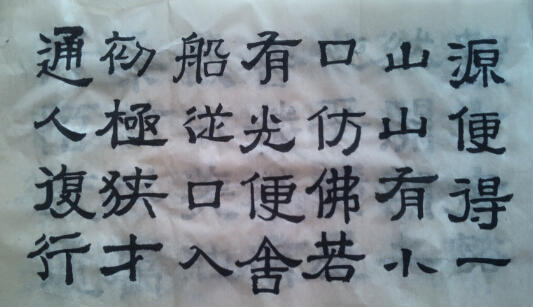 源便得一
山山有小
口仿佛若
有光便舍
船従口入
初極狭才
通人復行